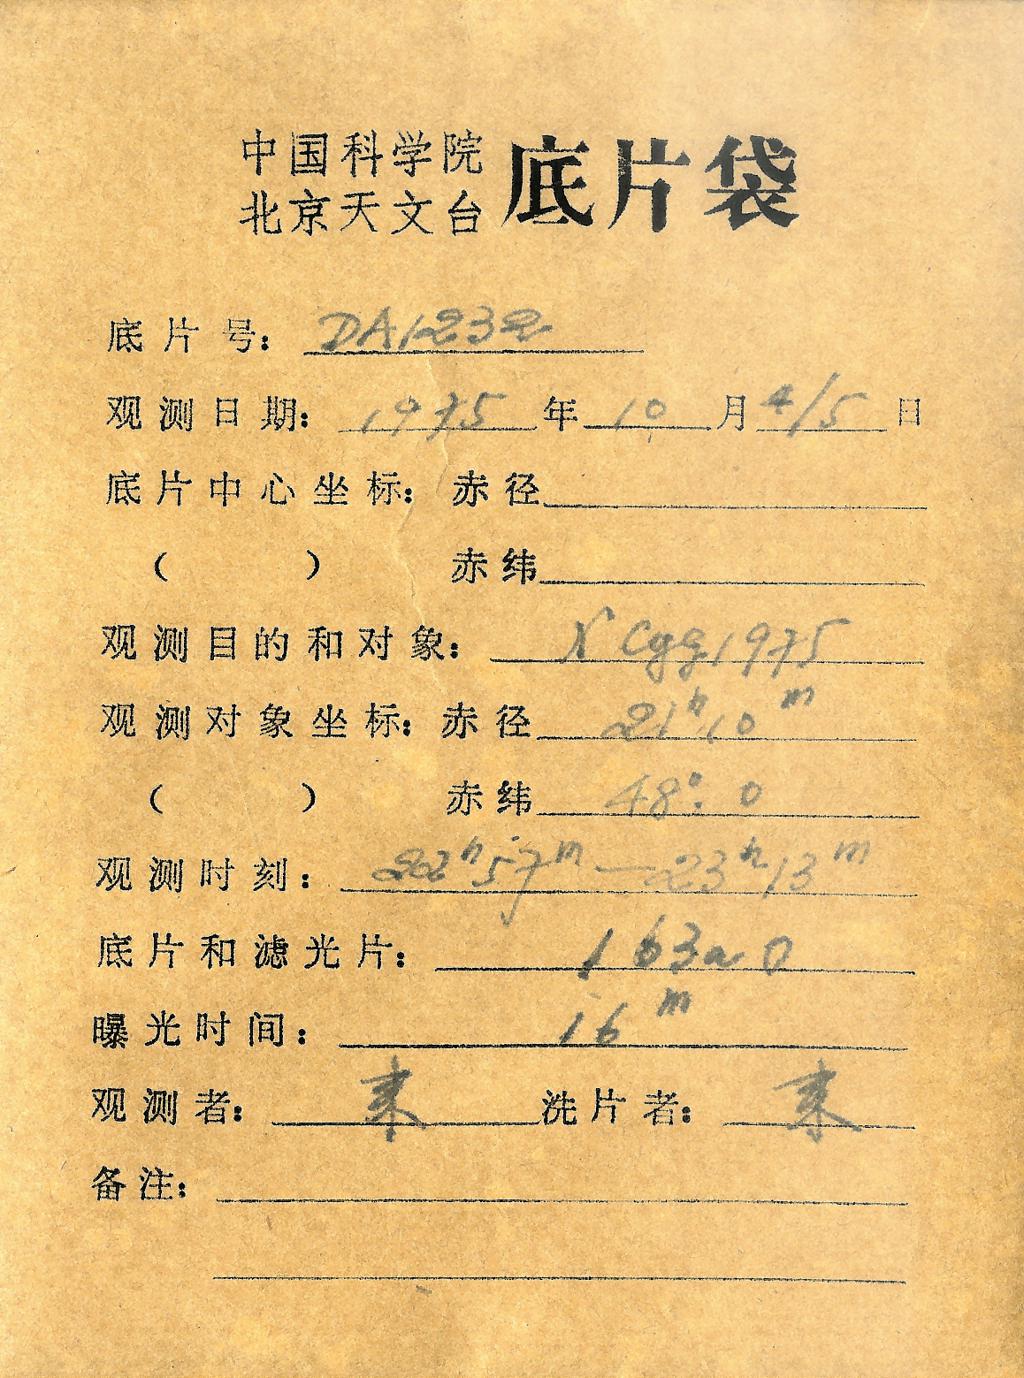 中国科学院
北京天文台 底片袋
底片号: DA1232
观测日期: 1975年10月4/5日
底片中心坐标: 赤径
( ) 赤纬
观测目的和对象: N Cyg 1975
观测对象坐标: 赤径 21ʰ10ᵐ
( ) 赤纬 48°.0
观测时刻: 22ʰ57ᵐ—23ʰ13ᵐ
底片和滤光片: 163aO
曝光时间: 16ᵐ
观测者: 洗片者:
备注: